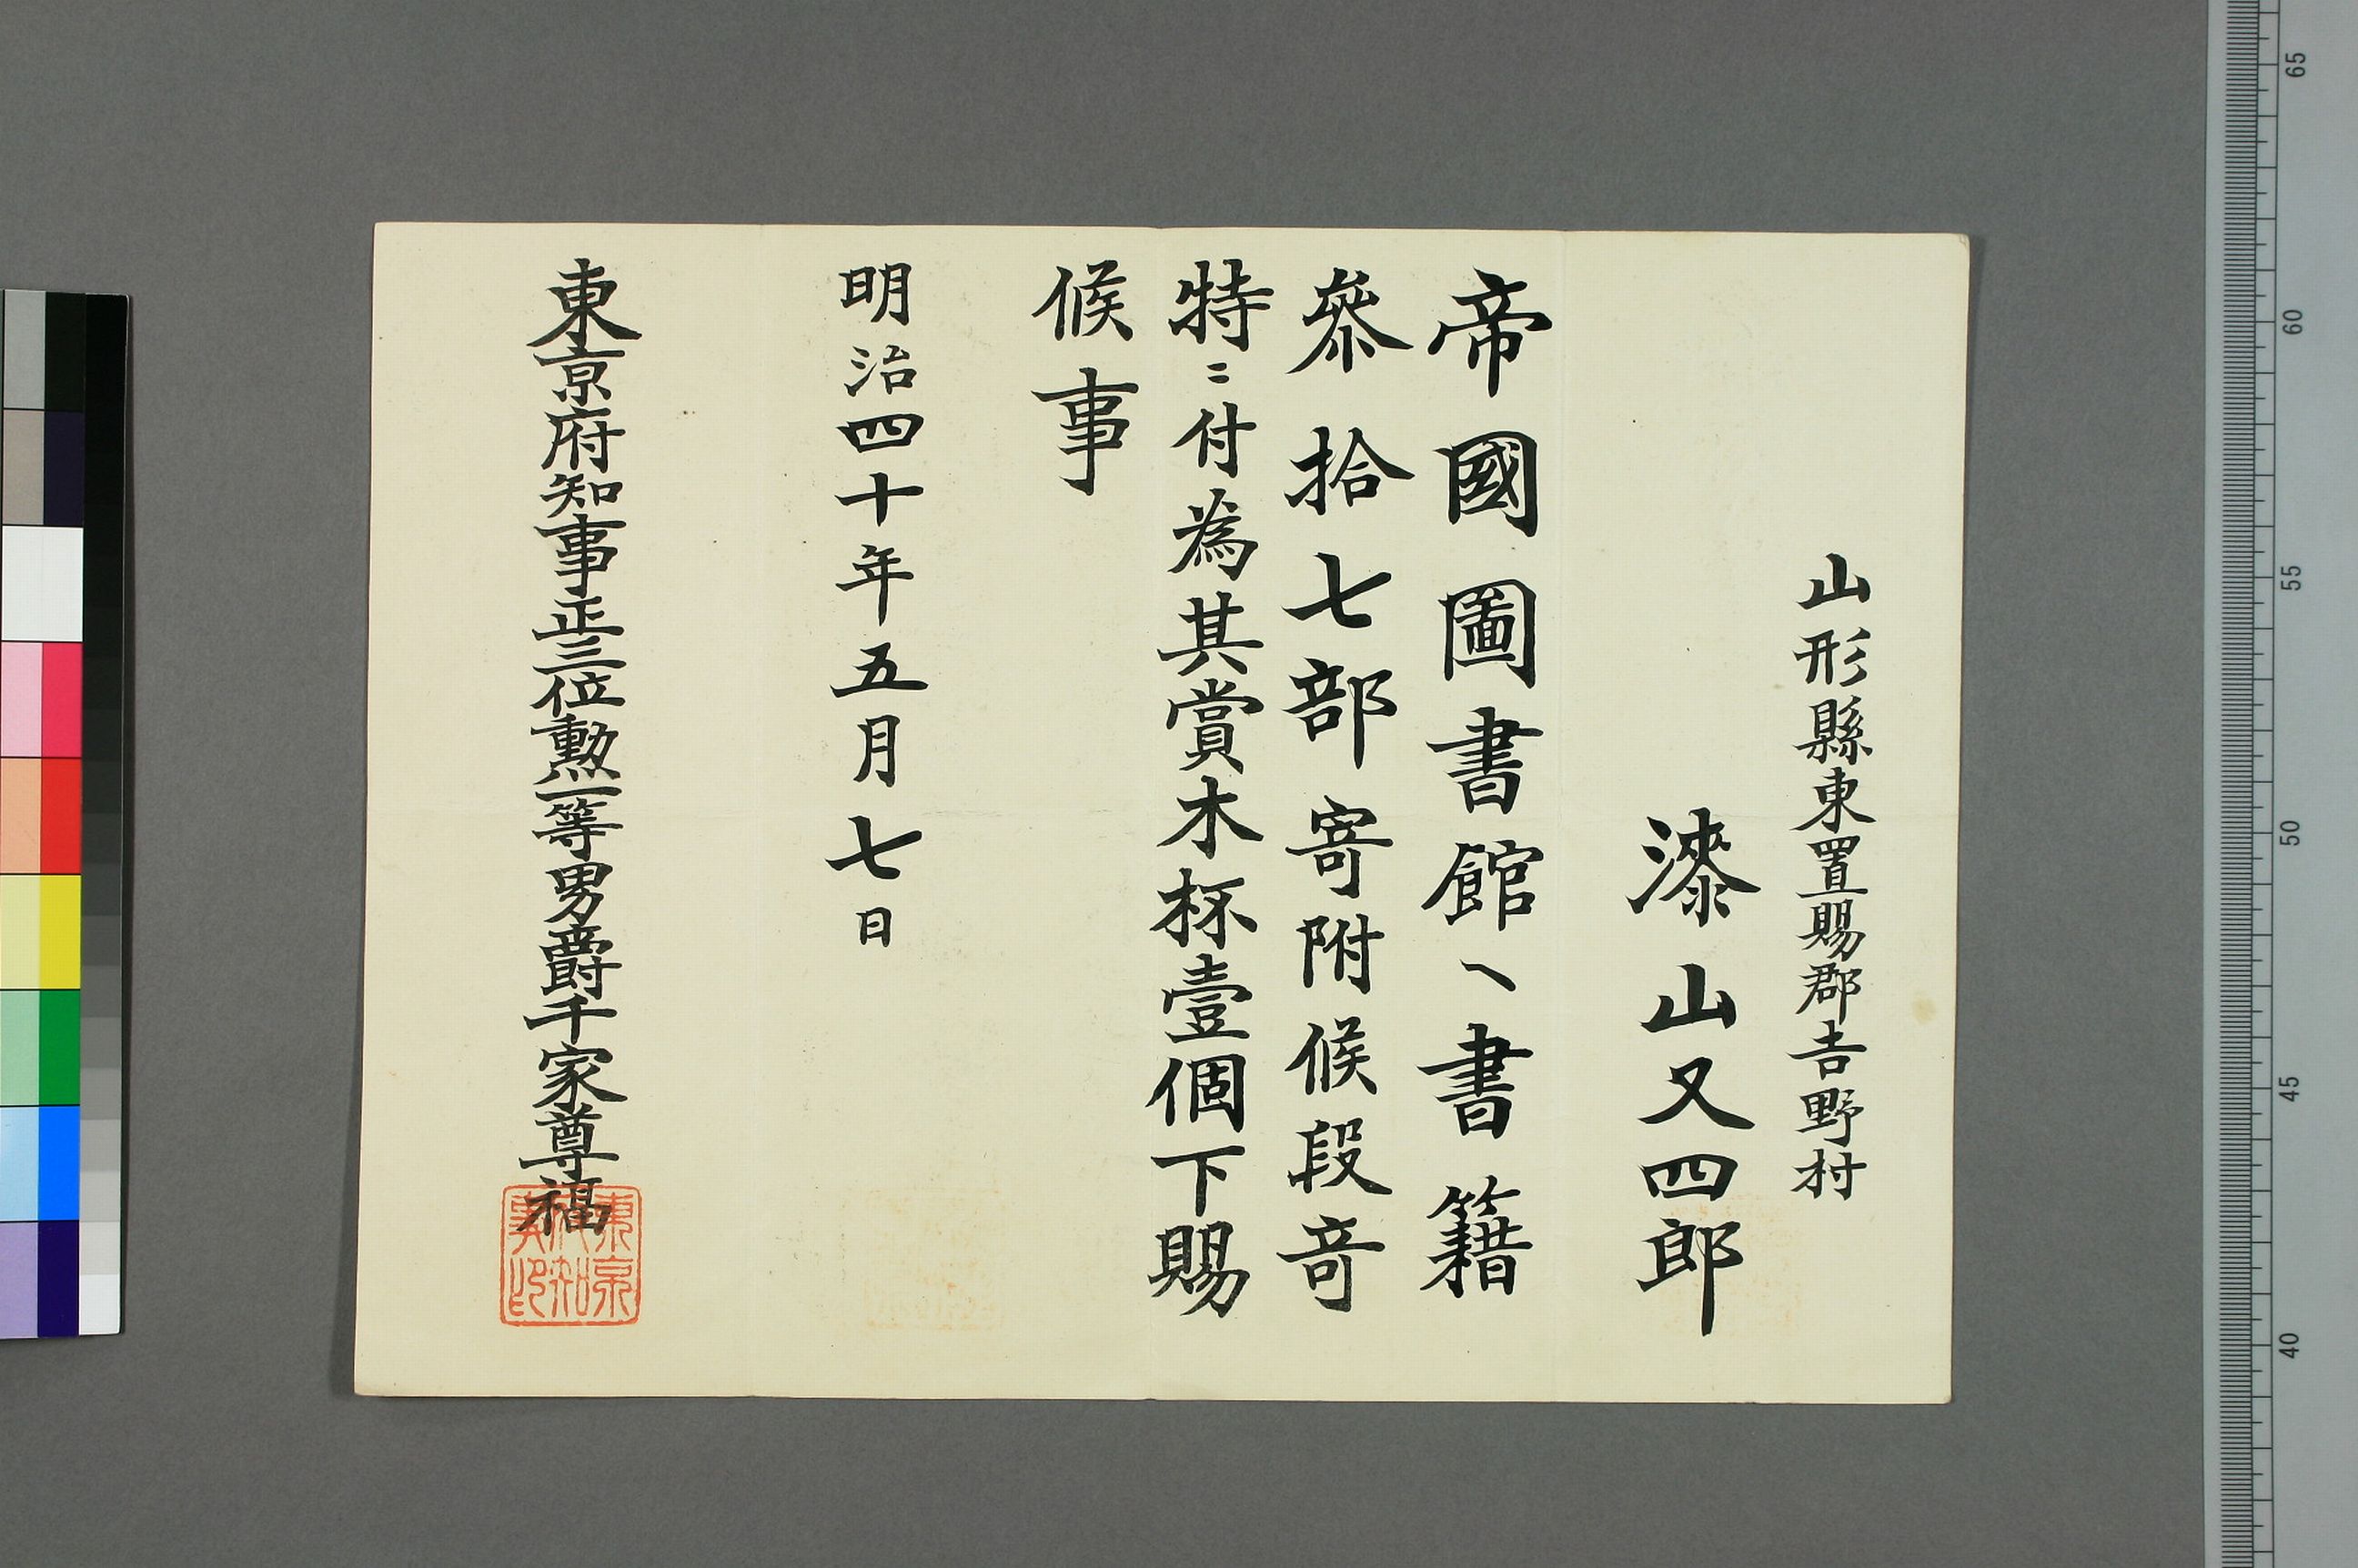 山形縣東置賜郡吉野村
漆山又四郎
帝國圖書館ヘ書籍
參拾七部寄附候段奇
特ニ付為其賞木杯壹個下賜
候事
明治四十年五月七日
東京府知事正三位勲一等男爵千家尊福
東京府知事印
65
60
55
50
45
40